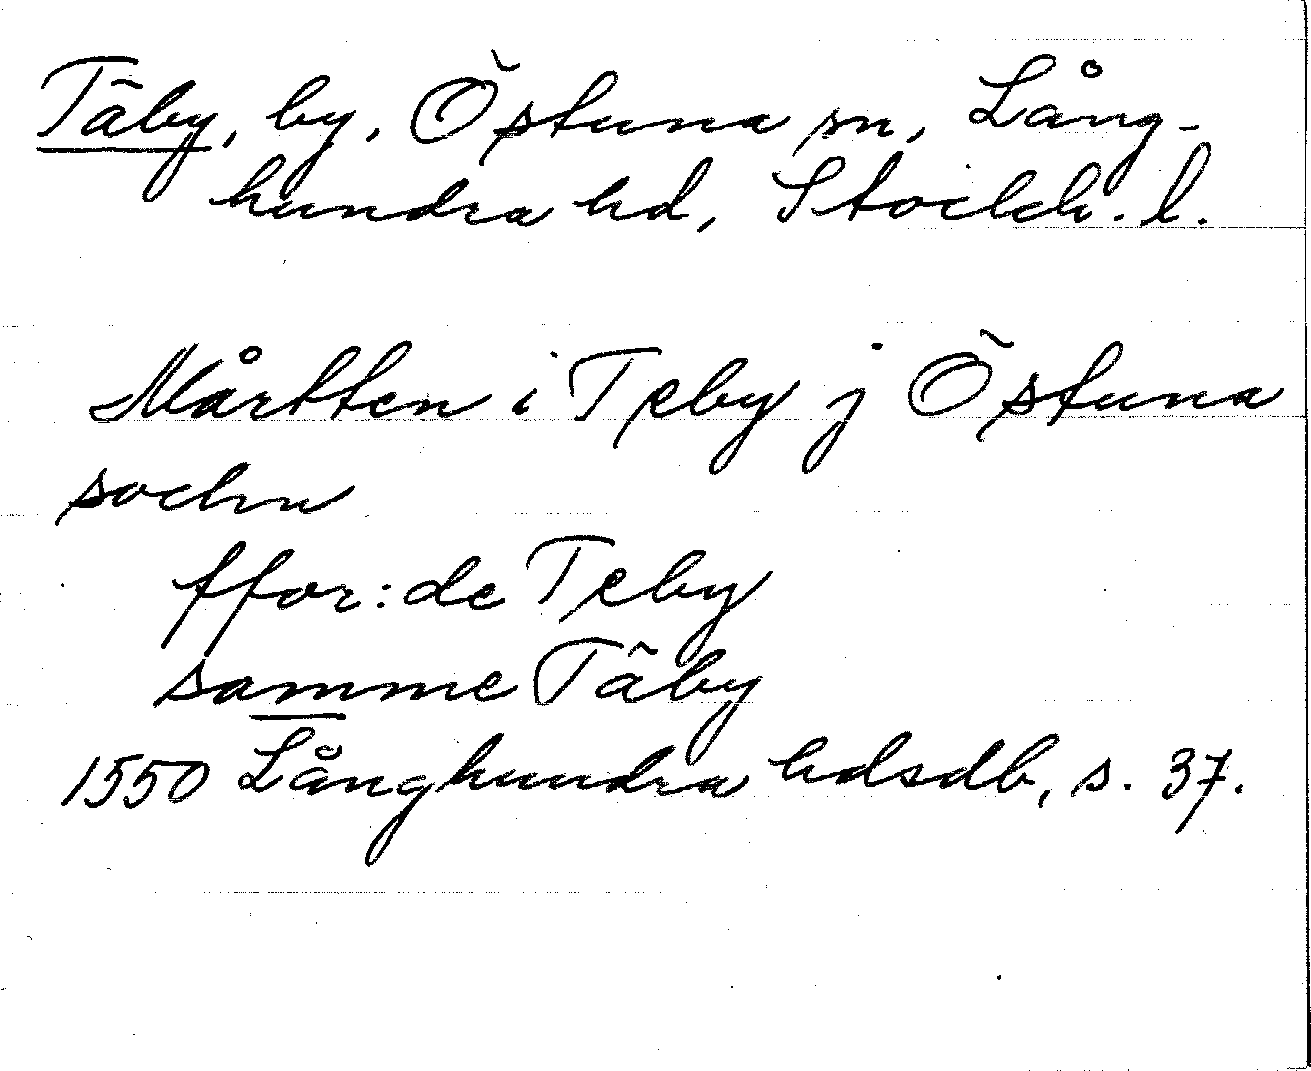 Täby, by, Östuna sn, Lång-
hundra hd, Stockh. l.
Mårtten i Teby j Östuna
sochn
ffor: de Teby
samme Täby
1550 Långhundra hdsdb, s. 37.